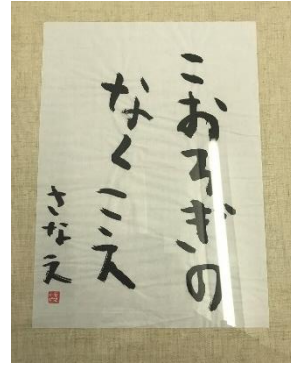 こおろぎの
なくこえ
さなえ